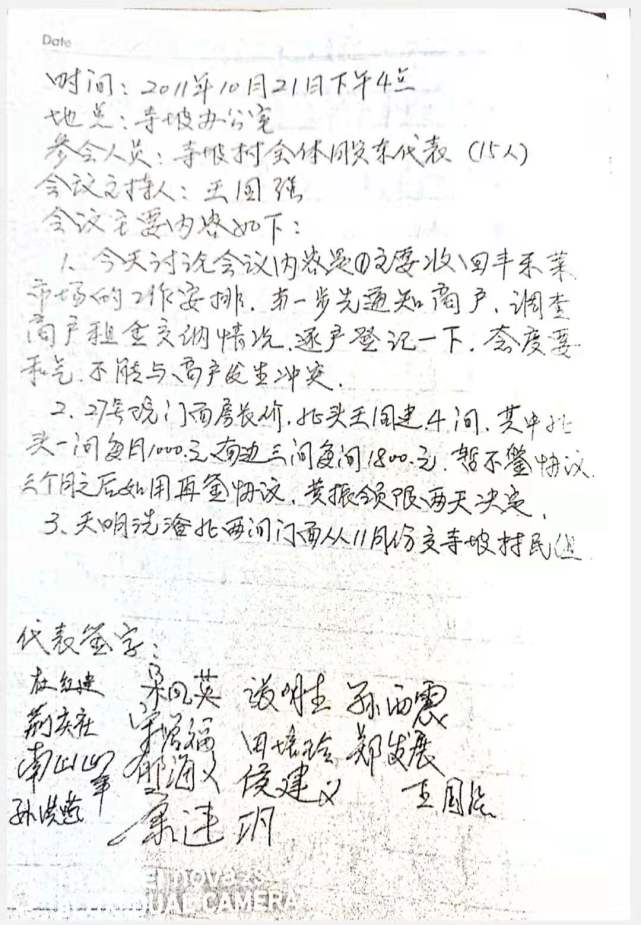 Date
时间：2011年10月21日下午4点
地点：寺坡办公室
参会人员：寺坡村全体股东代表（15人）
会议主持人：王国强
会议主要内容如下：
1、今天讨论会议内容是①主要收回丰禾菜
市场的工作安排，第一步先通知商户，调查
商户租金交纳情况，逐户登记一下，态度要
和气，不能与商户发生冲突，
2、27号院门面房长价，北头王国建4间，其中北
头一间每月1000元，南边三间每间1800元，暂不签协议，
三个月之后如用再签协议，黄振领限两天决定，
3、天明洗浴北两间门面从11月份交寺坡村民组
代表签字：
宋凤英 孙西震
荆庆社 田培玲 郑发展
南山 侯建义 王国强
孙洪
DUAL CAMERA